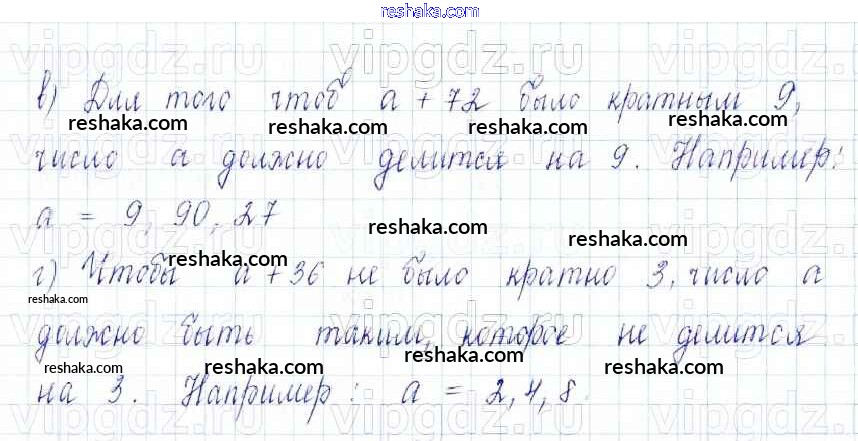 reshaka.com
vipgdz.ru vipgdz.ru vipgdz.ru
в) Для того чтоб a + 72 было кратным 9,
reshaka.com reshaka.com reshaka.com
число a должно делится на 9. Например:
a = 9, 90, 27
reshaka.com reshaka.com
г) Чтобы a + 36 не было кратно 3, число a
reshaka.com reshaka.com reshaka.com
должно быть таким, которое не делится
reshaka.com reshaka.com reshaka.com
на 3. Например: a = 2, 4, 8.